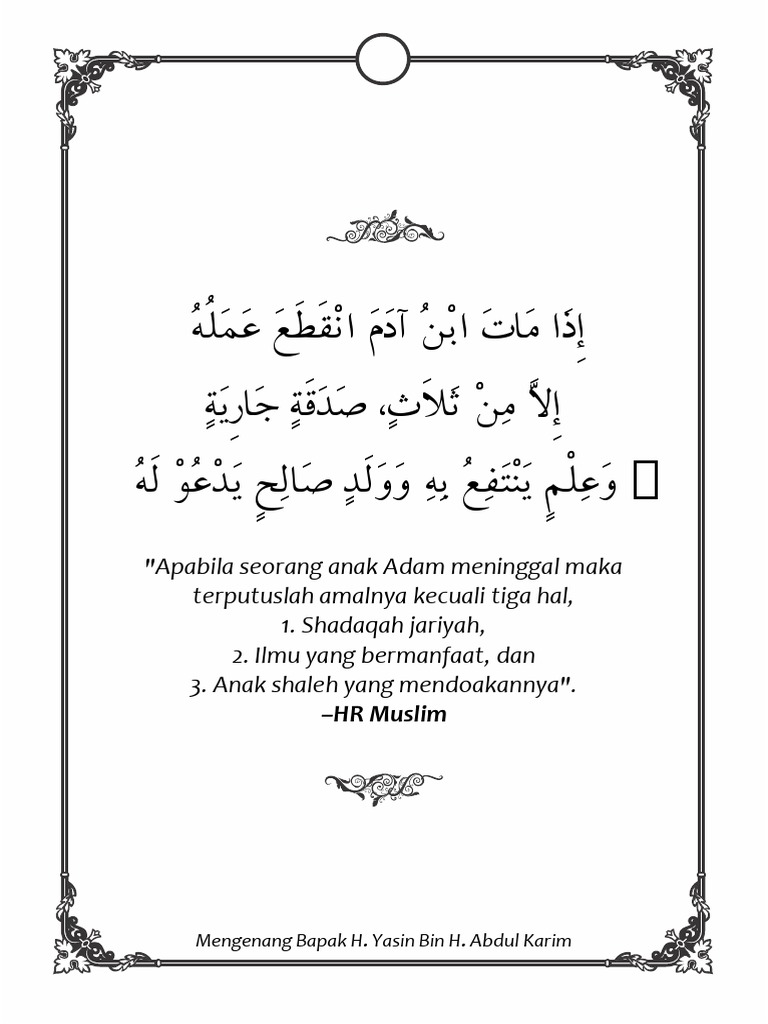 إِذَا مَاتَ ابْنُ آدَمَ انْقَطَعَ عَمَلُهُ
إِلاَّ مِنْ ثَلاَثٍ، صَدَقَةٍ جَارِيَةٍ
وَعِلْمٍ يَنْتَفِعُ بِهِ وَوَلَدٍ صَالِحٍ يَدْعُوْ لَهُ
"Apabila seorang anak Adam meninggal maka
terputuslah amalnya kecuali tiga hal,
1. Shadaqah jariyah,
2. Ilmu yang bermanfaat, dan
3. Anak shaleh yang mendoakannya".
–HR Muslim
Mengenang Bapak H. Yasin Bin H. Abdul Karim